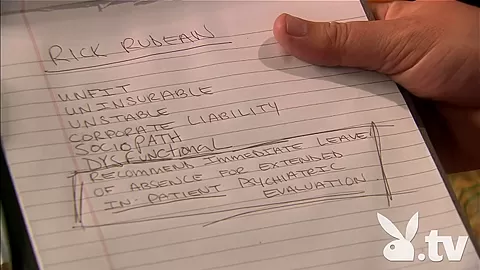 RICK RUDEAIN
UNFIT
UNINSURABLE
UNSTABLE
CORPORATE LIABILITY
SOCIOPATH
DYSFUNCTIONAL
RECOMMEND IMMEDIATE LEAVE
OF ABSENCE FOR EXTENDED
IN-PATIENT PSYCHIATRIC
EVALUATION
.tv